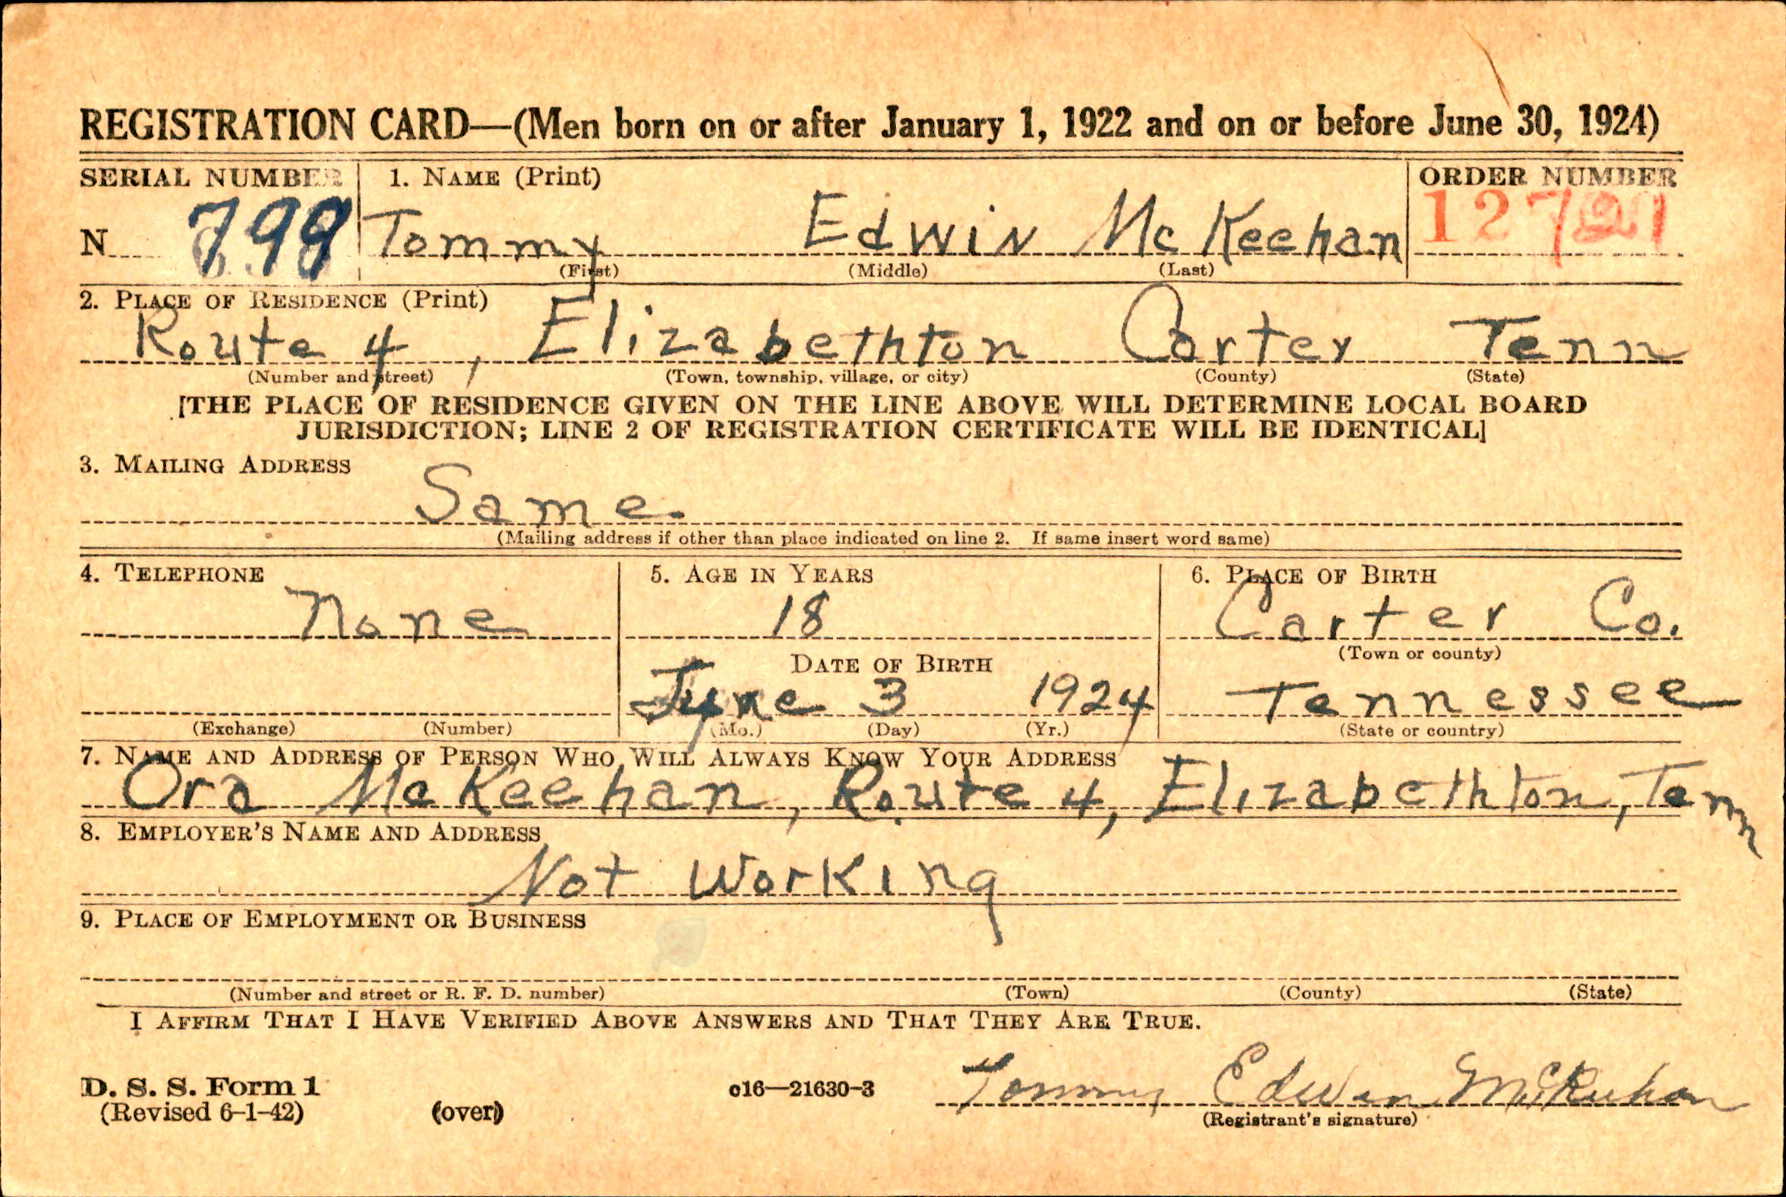 REGISTRATION CARD—(Men born on or after January 1, 1922 and on or before June 30, 1924)
SERIAL NUMBER 1. NAME (Print) ORDER NUMBER
N 799 Tommy Edwin McKeehan
(First) (Middle) (Last)
2. PLACE OF RESIDENCE (Print)
Route 4, Elizabethton Carter Tenn
(Number and street) (Town, township, village, or city) (County) (State)
[THE PLACE OF RESIDENCE GIVEN ON THE LINE ABOVE WILL DETERMINE LOCAL BOARD
JURISDICTION; LINE 2 OF REGISTRATION CERTIFICATE WILL BE IDENTICAL]
3. MAILING ADDRESS
Same
(Mailing address if other than place indicated on line 2. If same insert word same)
4. TELEPHONE 5. AGE IN YEARS 6. PLACE OF BIRTH
None 18 Carter Co.
DATE OF BIRTH (Town or county)
June 3 1924 Tennessee
(Exchange) (Number) (Mo.) (Day) (Yr.) (State or country)
7. NAME AND ADDRESS OF PERSON WHO WILL ALWAYS KNOW YOUR ADDRESS
Ora McKeehan, Route 4, Elizabethton, Tenn
8. EMPLOYER'S NAME AND ADDRESS
Not Working
9. PLACE OF EMPLOYMENT OR BUSINESS
(Number and street or R. F. D. number) (Town) (County) (State)
I AFFIRM THAT I HAVE VERIFIED ABOVE ANSWERS AND THAT THEY ARE TRUE.
D. S. S. Form 1
(Revised 6-1-42) (over) c16—21630-3 Tommy Edwin McKeehan
(Registrant's signature)